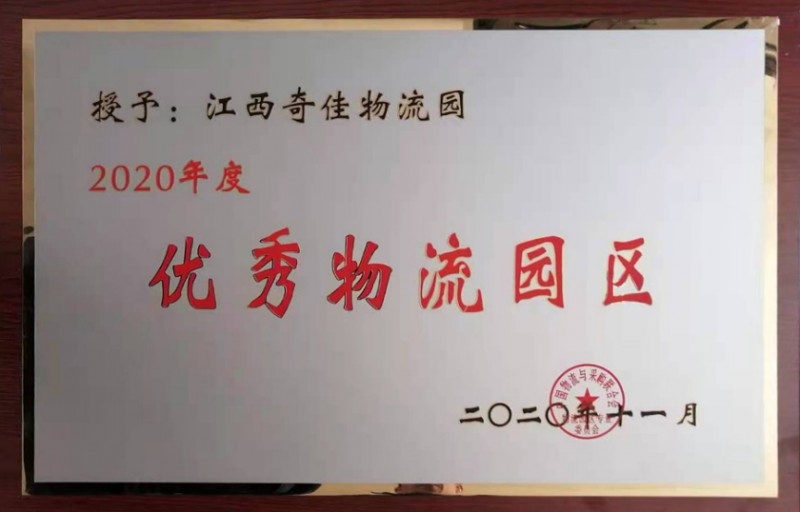 授予：江西奇佳物流园
2020年度
优秀物流园区
中国物流与采购联合会
委员会
二〇二〇年十一月